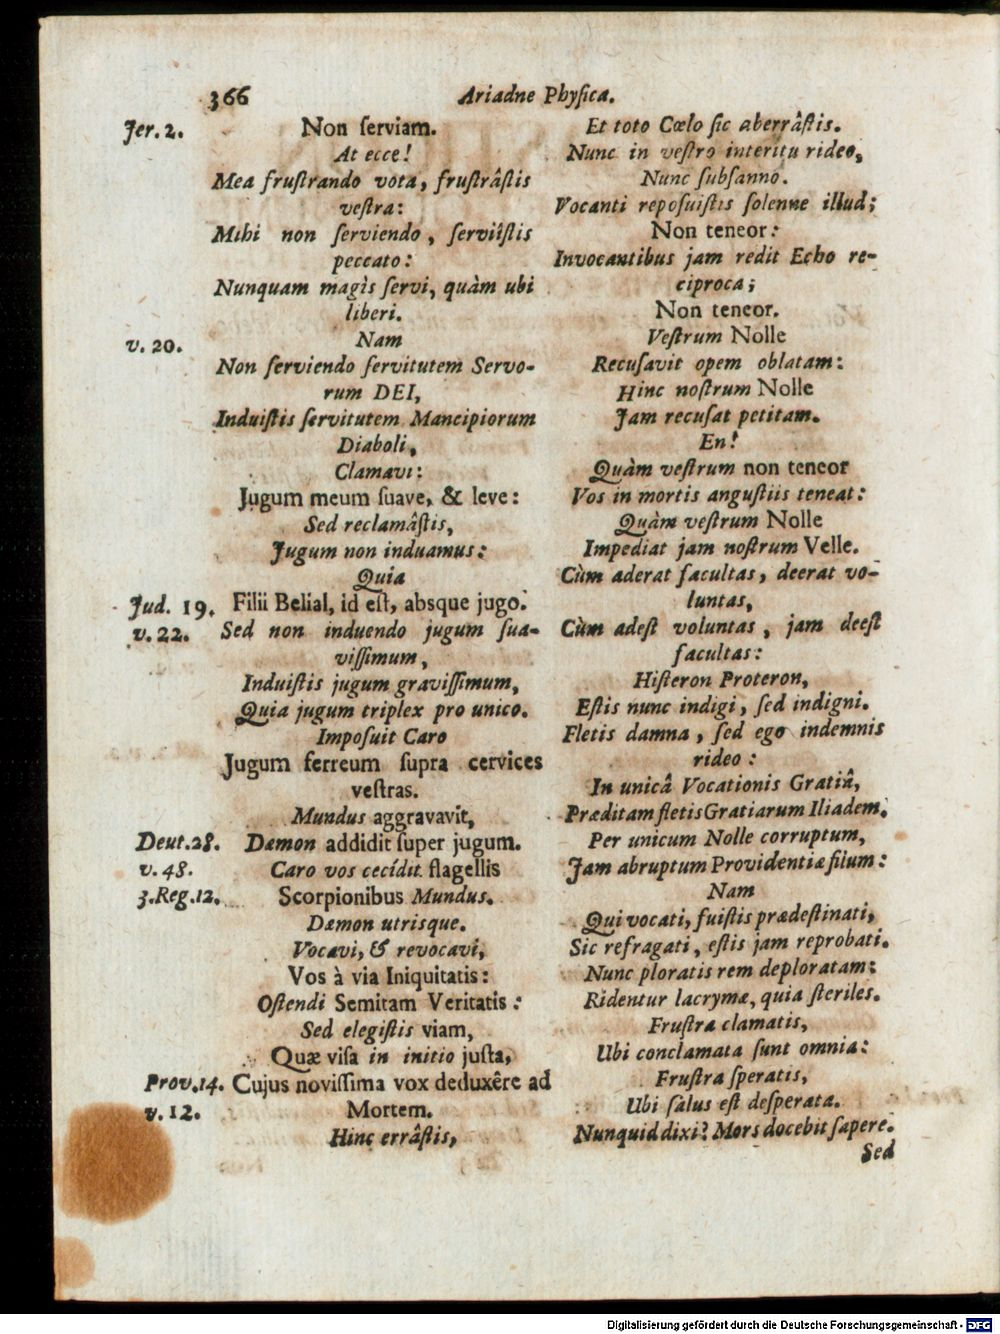 366
Ariadne Physica.
Jer. 2.
Non serviam.
At ecce!
Mea frustrando vota, frustrâstis
vestra:
Mihi non serviendo, serviîstis
peccato:
Nunquam magìs servi, quàm ubi
liberi.
v. 20.
Nam
Non serviendo servitutem Servo-
rum DEI,
Induistis servitutem Mancipiorum
Diaboli,
Clamavi:
Jugum meum suave, & leve:
Sed reclamâstis,
Jugum non induamus:
Quia
Jud. 19.
Filii Belial, id est, absque jugo.
v. 22.
Sed non induendo jugum sua-
vissimum,
Induistis jugum gravissimum,
Quia jugum triplex pro unico.
Imposuit Caro
Jugum ferreum supra cervices
vestras.
Mundus aggravavit,
Deut. 28.
Dæmon addidit super jugum.
v. 48.
Caro vos cecîdit flagellis
3. Reg. 12.
Scorpionibus Mundus.
Dæmon utrisque.
Vocavi, & revocavi,
Vos à via Iniquitatis:
Ostendi Semitam Veritatis:
Sed elegistis viam,
Quæ visa in initio justa,
Prov. 14.
Cujus novissima vox deduxêre ad
v. 12.
Mortem.
Hinc errâstis,
Et toto Cœlo sic aberrâstis.
Nunc in vestro interitu rideo,
Nunc subsanno.
Vocanti reposuistis solenne illud;
Non teneor:
Invocantibus jam redit Echo re-
ciproca;
Non teneor.
Vestrum Nolle
Recusavit opem oblatam:
Hinc nostrum Nolle
Jam recusat petitam.
En!
Quàm vestrum non teneor
Vos in mortis angustiis teneat:
Quàm vestrum Nolle
Impediat jam nostrum Velle.
Cùm aderat facultas, deerat vo-
luntas,
Cùm adest voluntas, jam deest
facultas:
Histeron Proteron,
Estis nunc indigi, sed indigni.
Fletis damna, sed ego indemnis
rideo:
In unicâ Vocationis Gratiâ,
Præditam fletis Gratiarum Iliadem.
Per unicum Nolle corruptum,
Jam abruptum Providentiæ filum:
Nam
Qui vocati, fuistis prædestinati,
Sic refragati, estis jam reprobati.
Nunc ploratis rem deploratam:
Ridentur lacrymæ, quia steriles.
Frustra clamatis,
Ubi conclamata sunt omnia:
Frustra speratis,
Ubi salus est desperata.
Nunquid dixi? Mors docebit sapere.
Sed
Digitalisierung gefördert durch die Deutsche Forschungsgemeinschaft - DFG